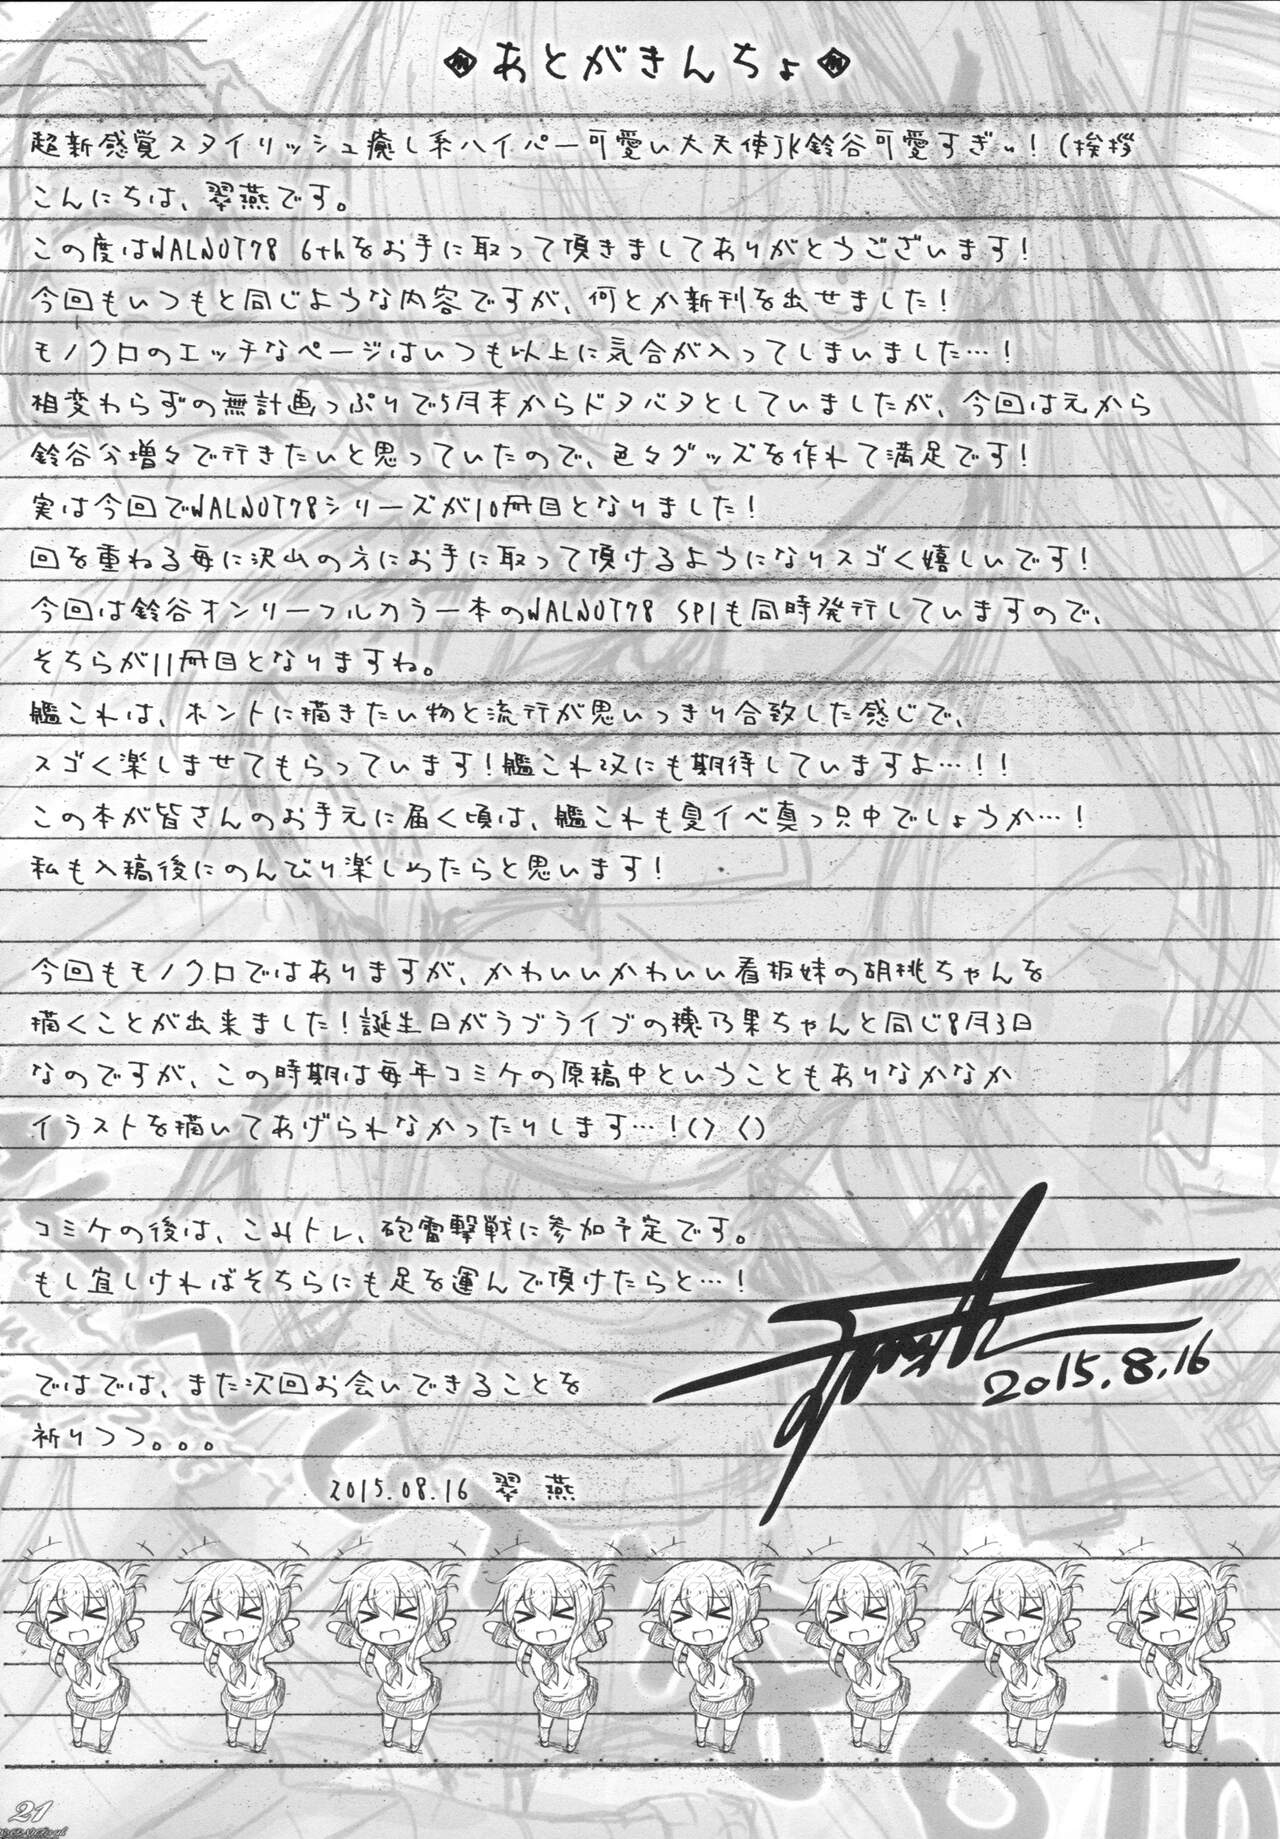 ◈あとがきんちょ◈
超新感覚スタイリッシュ癒し系ハイパー可愛い大天使JK鈴谷可愛すぎぃ!(挨拶
こんにちは、翠燕です。
この度はWALNOT78 6thをお手に取って頂きましてありがとうございます!
今回もいつもと同じような内容ですが、何とか新刊を出せました!
モノクロのエッチなページはいつも以上に気合が入ってしまいました…!
相変わらずの無計画っぷりで5月末からドタバタとしていましたが、今回は元から
鈴谷分増々で行きたいと思っていたので、色々グッズを作れて満足です!
実は今回でWALNOT78シリーズが10冊目となりました!
回を重ねる毎に沢山の方にお手に取って頂けるようになりスゴく嬉しいです!
今回は鈴谷オンリーフルカラー本のWALNOT78 SP1も同時発行していますので、
そちらが11冊目となりますね。
艦これは、ホントに描きたい物と流行が思いっきり合致した感じで、
スゴく楽しませてもらっています!艦これ改にも期待していますよ…!!
この本が皆さんのお手元に届く頃は、艦これも夏イベ真っ只中でしょうか…!
私も入稿後にのんびり楽しめたらと思います!
今回もモノクロではありますが、かわいいかわいい看板妹の胡桃ちゃんを
描くことが出来ました!誕生日がラブライブの穂乃果ちゃんと同じ8月3日
なのですが、この時期は毎年コミケの原稿中ということもありなかなか
イラストを描いてあげられなかったりします…!() ()
コミケの後は、こみトレ、砲雷撃戦に参加予定です。
もし宜しければそちらにも足を運んで頂けたらと…!
ではでは、また次回お会いできることを
祈りつつ。。。
2015.08.16 翠 燕
2015.8.16
6th
21